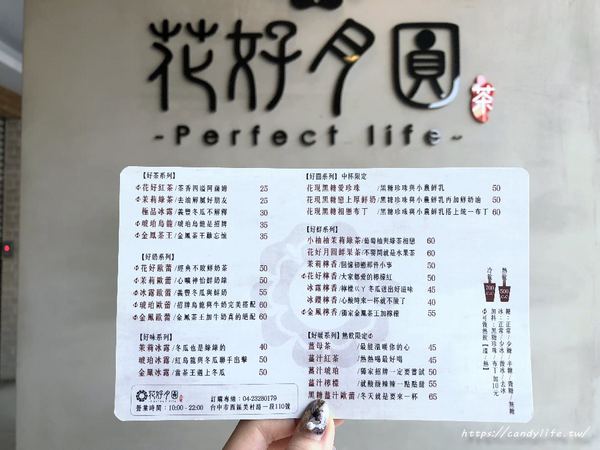 花好月圓
茶
~Perfect life~
【好茶系列】
花好紅茶/茶香四溢阿薩姆 25
茉莉綠茶/去油解膩好朋友 25
極品冰露/義豐冬瓜不解釋 30
琥珀烏龍/琥珀烏龍是招牌 35
金鳳茶王/金鳳茶王難忘懷 35
【好奶系列】
花好歐蕾/經典不敗鮮奶茶 50
茉莉歐蕾/心曠神怡鮮奶綠 50
冰露歐蕾/義豐冬瓜與鮮奶 55
琥珀歐蕾/招牌烏龍與牛奶完美搭配 60
金鳳歐蕾/金鳳茶王加牛奶真的過癮 60
【好味系列】
茉莉冰露/冬瓜也是綠綠的 40
琥珀冰露/紅烏龍與冬瓜聯手出擊 50
金鳳冰露/當茶王遇上冬瓜 50
花好月圓
訂購專線：04-23280179
營業時間：10:00 - 22:00 台中市西區美村路一段110號
【好圓系列】中杯限定
花現黑糖愛珍珠 /黑糖珍珠與小農鮮乳 50
花現黑糖戀上厚鮮奶/黑糖珍珠與小農鮮乳再加鮮奶油 50
花現黑糖相戀布丁 /黑糖珍珠與小農鮮乳搭上統一布丁 60
【好鮮系列】
小柚柚茉莉綠茶/葡萄柚與綠茶相戀 60
花好月圓鮮果茶/不要問就是水果茶 60
茉莉檸香/回憶初戀那件小事 50
花好檸香/大家都愛的檸檬紅 50
冰露檸香/檸檬ㄚ冬瓜送出好滋味 45
冰鑽檸香/心酸時來一杯就不酸了 40
金鳳檸香/獨家金鳳茶王加檸檬 60
【好暖系列】熱飲限定
薑母茶 /最後溫暖你的心 45
薑汁紅茶 /熱熱喝最好喝 45
薑汁琥珀 /獨家招牌一定要嘗試 50
薑汁檸檬 /就酸酸辣辣一點點甜 55
黑糖薑汁歐蕾/冬天就是要來一杯 65
冷飲
700 c.c
熱飲
500 c.c
糖：正常/少糖/半糖/微糖/無糖
冰：正常/少冰/微冰/去冰
加料：黑糖珍珠、布丁 加10元
可做熱飲【溫/熱】
https://candylife.tw/